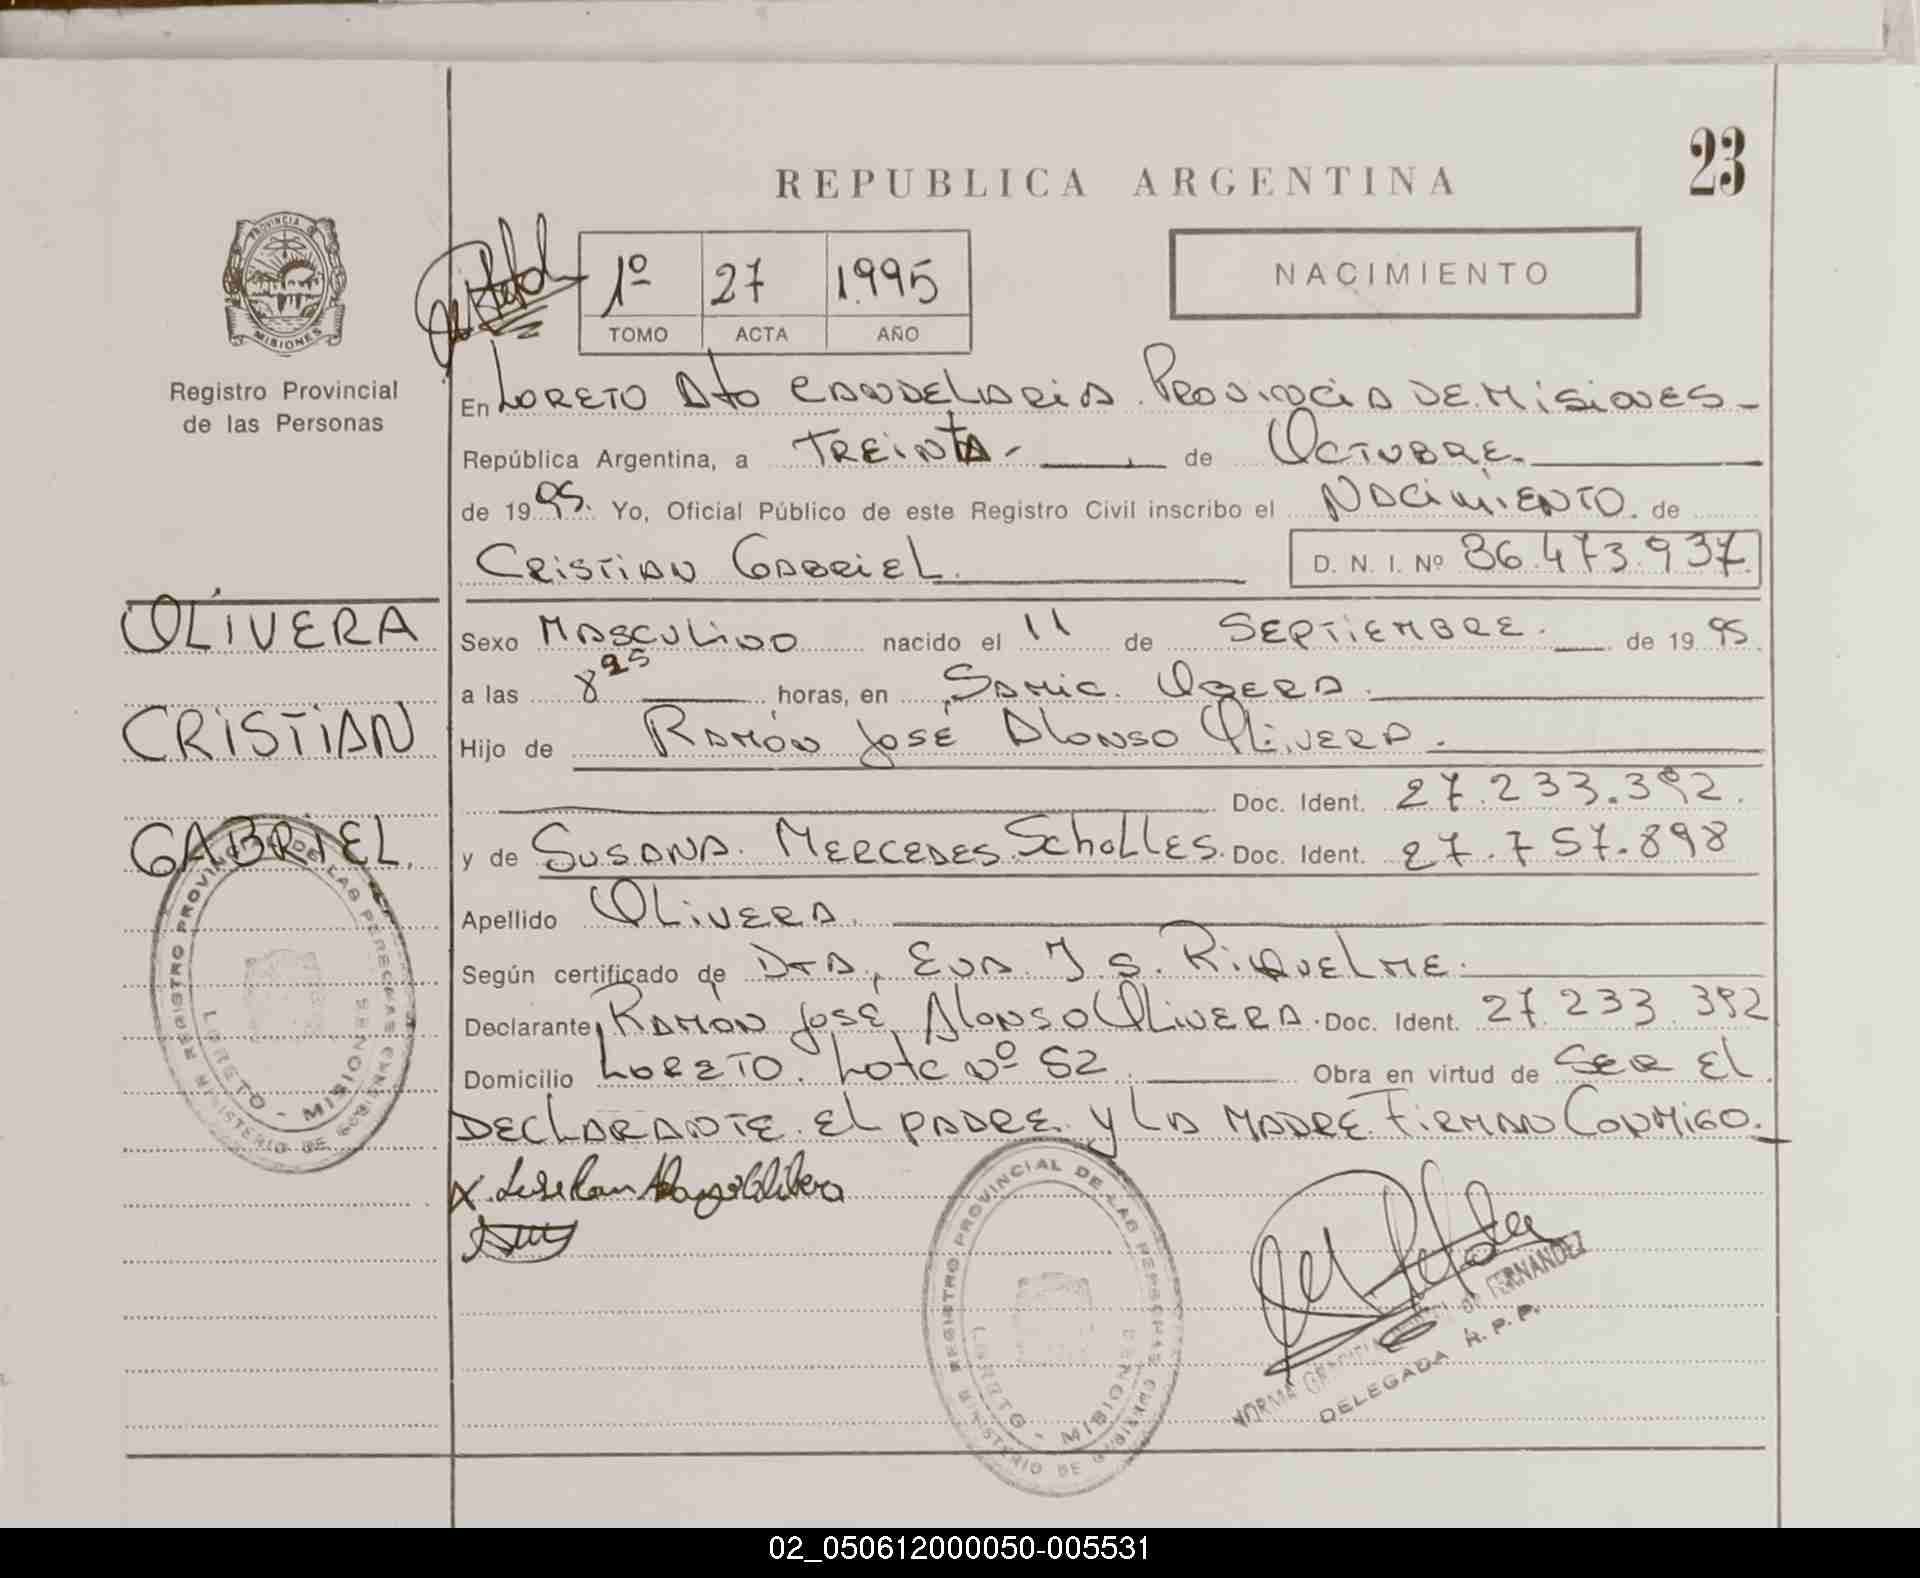 23
REPUBLICA ARGENTINA
PROVINCIA DE MISIONES
Registro Provincial
de las Personas
1º 27 1.995
TOMO ACTA AÑO
NACIMIENTO
En LORETO Dto CANDELARIA. PROVINCIA DE MISIONES-
República Argentina, a TREINTA- de OCTUBRE.
de 1995. Yo, Oficial Público de este Registro Civil inscribo el NACIMIENTO. de
CRISTIAN GABRIEL. D. N. I. Nº 36.473.937.
OLIVERA
CRISTIAN
GABRIEL.
Sexo MASCULINO nacido el 11 de SEPTIEMBRE. de 1995.
a las 8 25 horas, en SAMIC. OBERA.
Hijo de RAMÓN JOSÉ ALONSO OLIVERA.
Doc. Ident. 27.233.392.
y de SUSANA. MERCEDES SCHOLLES. Doc. Ident. 27.757.898
Apellido OLIVERA.
Según certificado de DRA, EVA. J S. RIQUELME.
Declarante, RAMÓN JOSÉ ALONSO OLIVERA. Doc. Ident. 27 233 392
Domicilio LORETO. Lote Nº 52 Obra en virtud de SER EL
DECLARANTE. EL PADRE. Y LA MADRE FIRMAN CONMIGO.
REGISTRO PROVINCIAL DE LAS PERSONAS
MINISTERIO DE GOBIERNO
LORETO - MISIONES
REGISTRO PROVINCIAL DE LAS PERSONAS
MINISTERIO DE GOBIERNO
LORETO - MISIONES
NORMA DE FERNANDEZ
DELEGADA R.P.P.
02_050612000050-005531